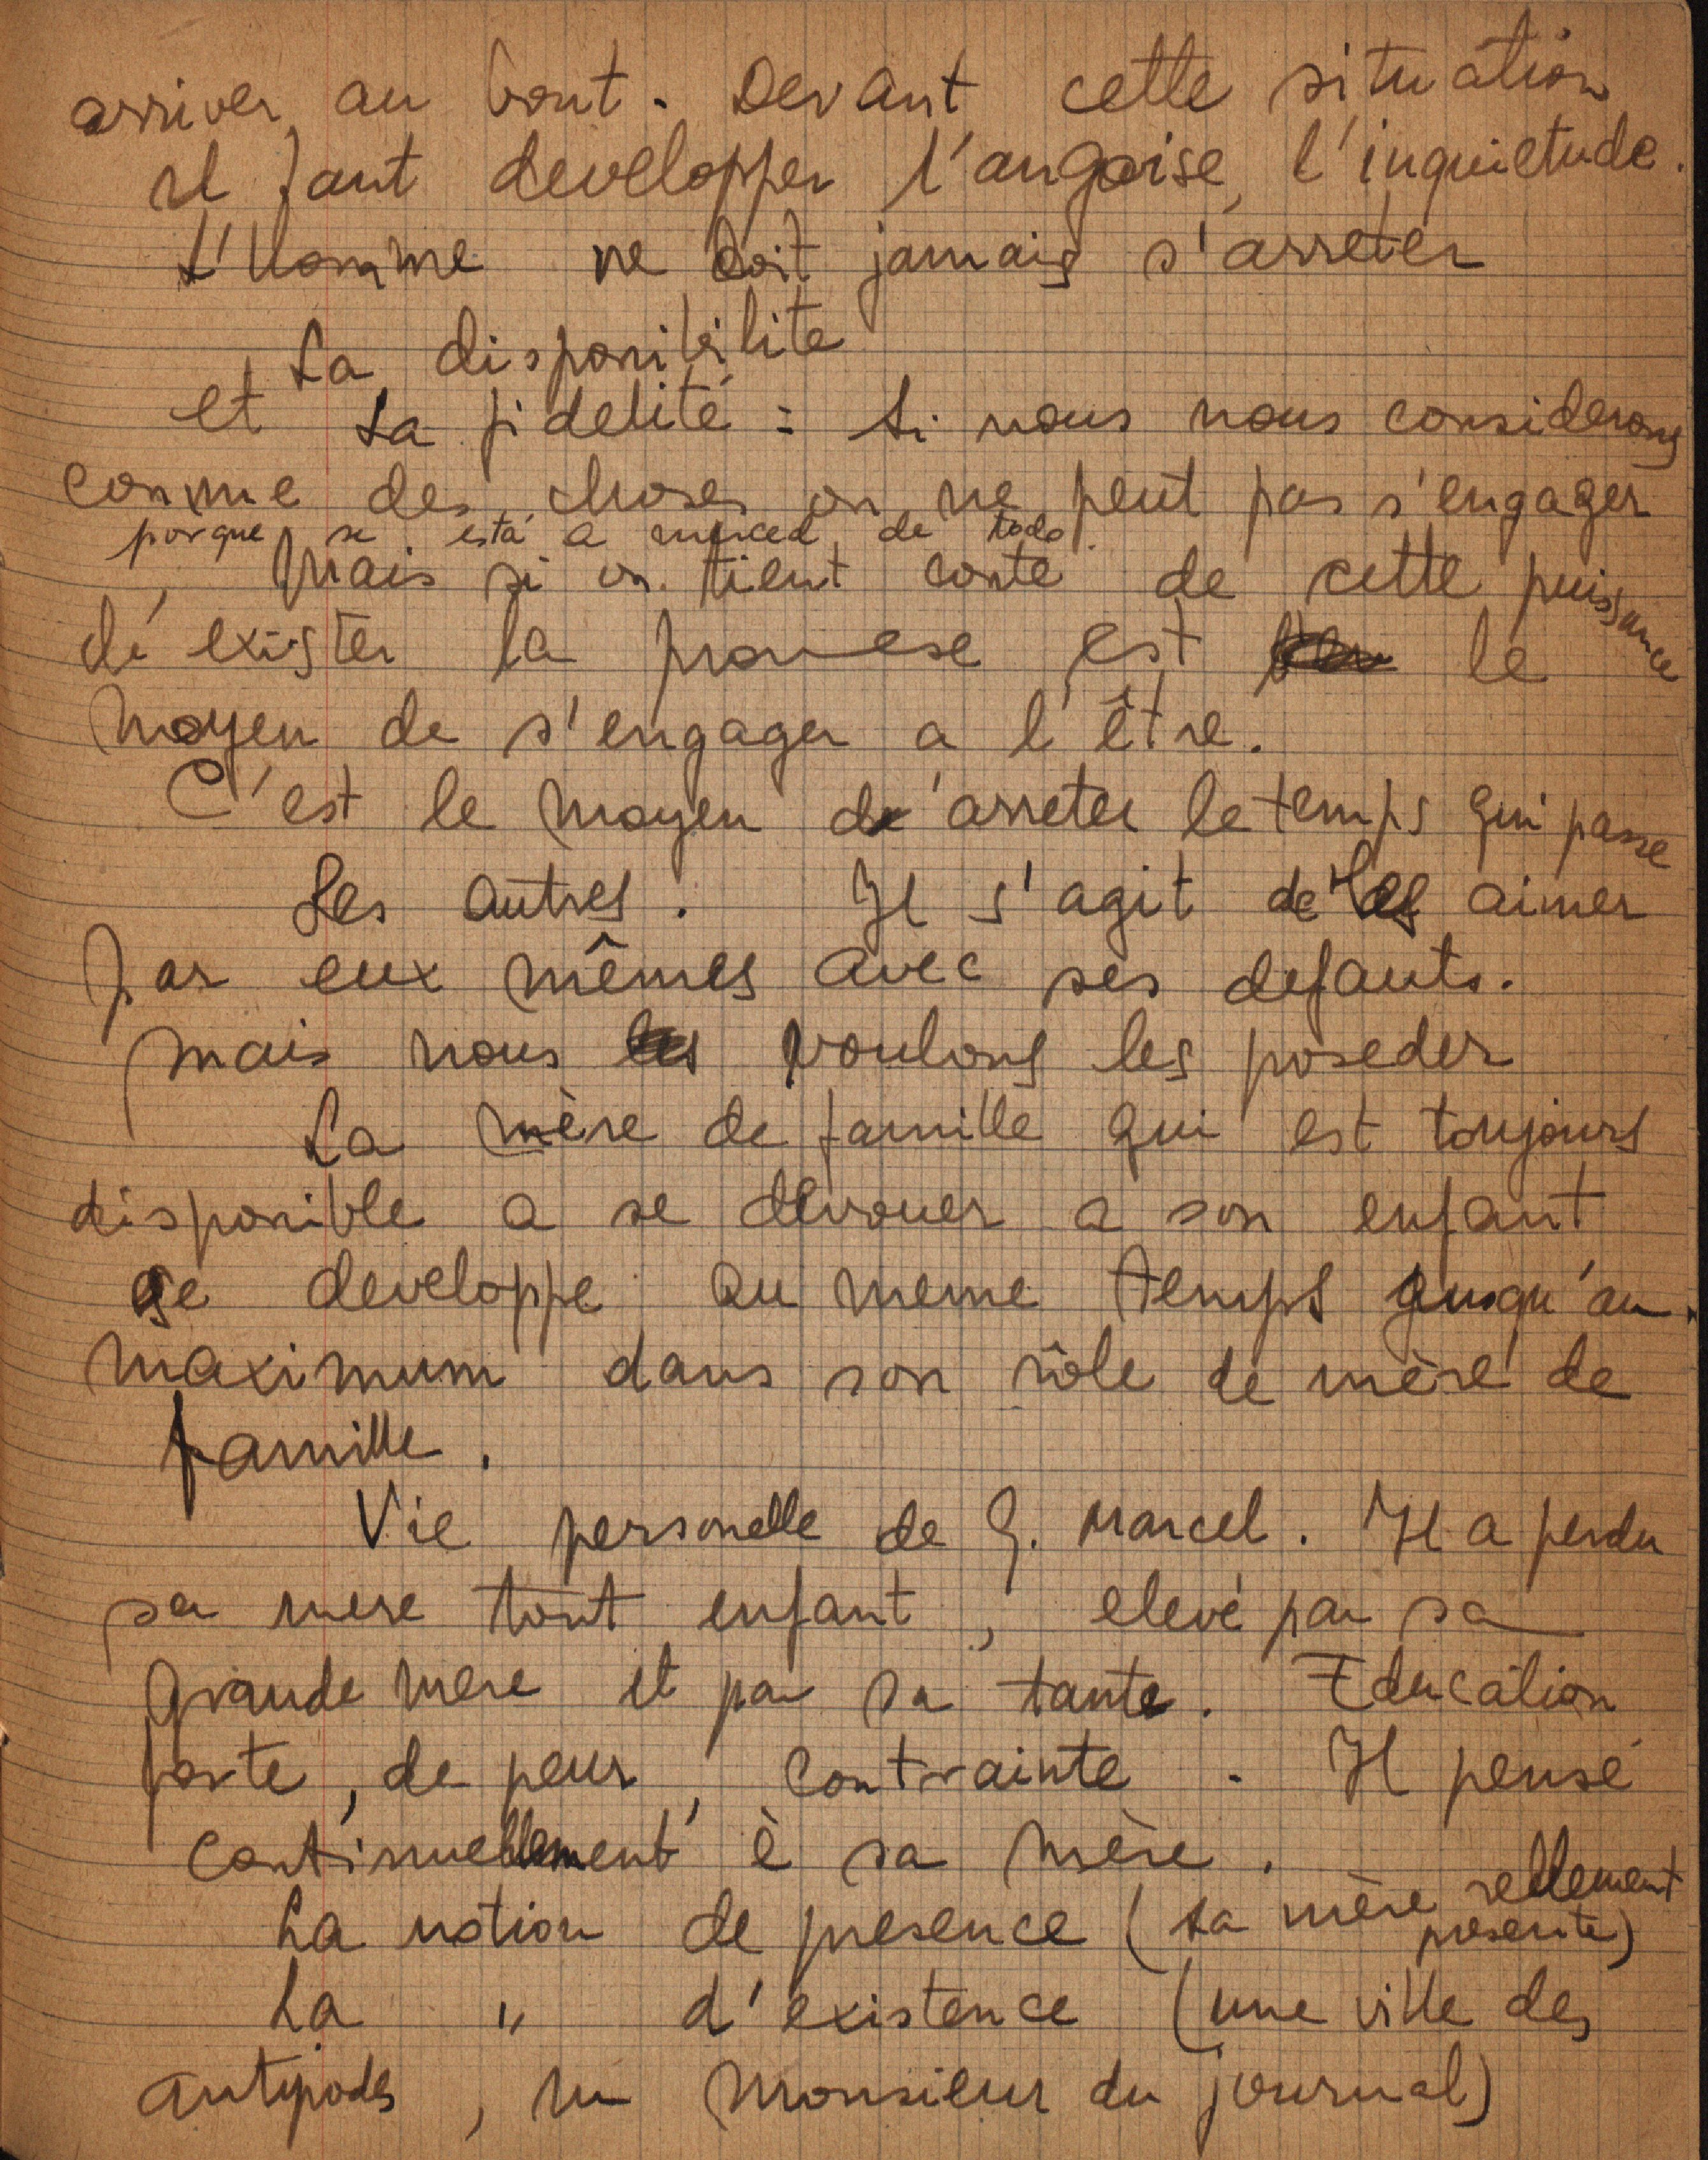 arriver au bout. Devant cette situation
il faut developper l'angoise, l'inquietude.
L'Homme ne doit jamais s'arreter
La disponibilite
et la fidelité = Si nous nous considerons
comme des choses on ne peut pas s'engager
porque se está a merced de todo.
, Mais si on tient conte de cette puissance
de exister la promese est le
moyen de s'engager a l'être.
C'est le moyen d'arreter le temps qui passe
Les autres. Il s'agit de les aimer
par eux mêmes avec ses defauts.
Mais nous voulons les poseder
La mère de famille qui est toujours
disponible a se devouer a son enfant
se developpe au meme temps jusqu'au
maximum dans son rôle de mère de
famille.
Vie personelle de G. Marcel. Il a perdu
sa mere tout enfant, elevé par sa
grande mere et par sa tante. Education
forte, de peur, contrainte. Il pense
continuellement è sa mère.
La notion de presence (sa mère reellement
presente)
La " d'existence (une ville des
antipodes, un monsieur du journal)